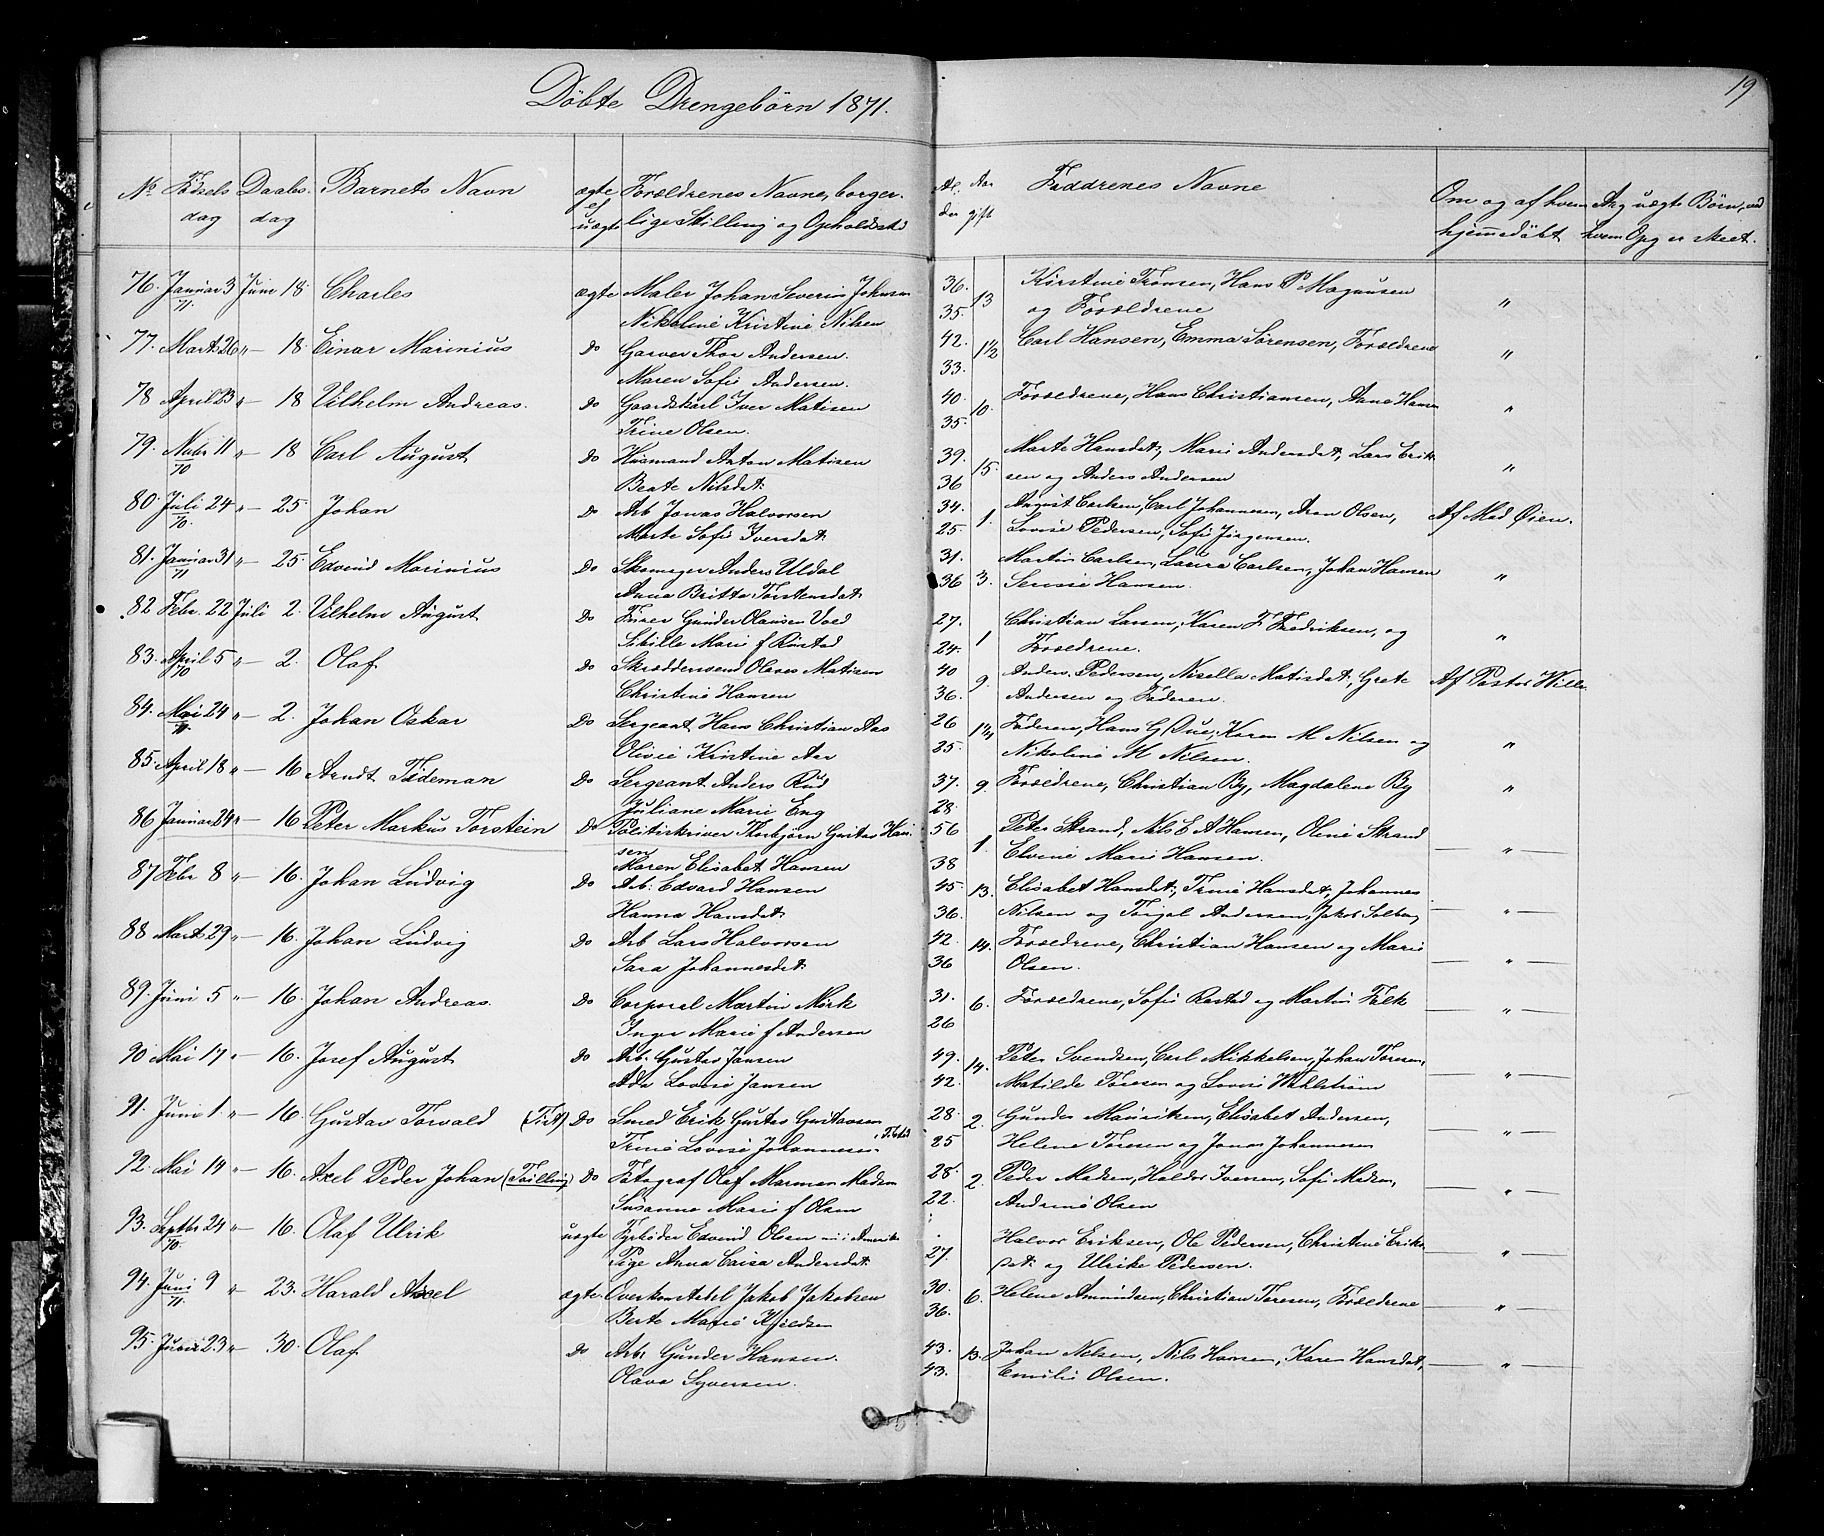 19
Döbte Drengebörn 1871.
No Födsels dag Daabs. dag Barnets Navn ægte el uægte Forældrenes Navne, borgerlige Stilling og Opholdsst. Al. der Aar gift Faddrenes Navne Om og af hvem hjemmedöbt Ang uægte Börn, ved hvem Opg er skeet.
76. Januar 3 71. Juni 18. Charles ægte Maler Johan Severin Johnsen 36. 13 Kirstine Tronsen, Hans P Magnusen "
Nikoline Kristine Nilsen 35. og Forældrene
77. Marts 26 " — 18. Einar Marinius Do Garver Thor Andersen. 42. 1½ Carl Hansen, Emma Sörensen, Forældrene "
Maren Sofie Andersen. 33.
78 April 23 " — 18 Vilhelm Andreas. Do Gaardskarl Iver Matisen 40. 10. Forældrene, Hans Christiansen, Anne Hansen "
Trine Olsen. 35.
79. Novbr 11 70 " — 18 Carl August Do Husmand Anton Matisen 39. 15. Marte Hansdat., Marie Andersdat, Lars Erik-
Beate Nilsdat. 36 sen og Anders Andersen "
80. Juli 24 70. " — 25. Johan Do Arb Jonas Halvorsen 34. 1. August Carlsen, Carl Johannesen, Aron Olsen, Af Mad Öien.
Marte Sofie Iversdat. 25. Lovise Pedersen, Sofie Jörgensen.
81. Januar 31 71 " — 25. Edvind Marinius Do Skomager Anders Uldal 31. 3. Martin Carlsen, Laura Carlsen, Johan Hansen "
Anna Britta Torstensdat. 36 Hansen.
82 Febr. 22 Juli 2. Vilhelm August Do Furer Gunder Olausen Voed 27. 1 Christian Larsen, Karen F Fredriksen, og "
Sibille Marie f Rustad 24. Forældrene.
83. April 5 70 " — 2. Olaf. Do Skræddersvend Olaves Matisen 40 9. Anders Pedersen, Nisella Matisdat, Grete Af Pastor Wille.
Christine Hansen 36. Andersen og Faderen.
84. Mai 24 71. " — 2. Johan Oskar Do Sergeant Hans Christian Aas 26 1¼ Faderen, Hans G Due, Karen M Nilsen og "
Olivie Kristine Aas 25. Nikoline M Nilsen.
85. April 18 " — 16 Arndt Tideman Do Sergeant Anders Rud 37. 9. Forældrene, Christian By, Magdalene By "
Juliane Marie Eng 28
86 Januar 24 " — 16 Peter Markus Torstein Do Politiskriver Thorbjörn Gustav Han- 56 1. Peter Strand, Nils E A Hansen, Oline Strand — " —
sen
Maren Elisabet Hansen 38 Elvine Marie Hansen.
87 Febr 8 " — 16. Johan Ludvig Do Arb. Edvard Hansen 45. 13. Elisabet Hansdat, Trine Hansdat, Johannes
Hanna Hansdat. 36. Nilsen og Torgal Andersen, Jakob Solberg — " —
88 Marts 29 " — 16. Johan Ludvig Do Arb Lars Halvorsen 42. 14. Forældrene, Christian Hansen og Marie
Sara Johannesdat. 36 Olsen. — " —
89. Juni 5 " — 16. Johan Andreas. Do Corporal Martin Mörk 31. 6. Forældrene, Sofie Rastad og Martin Falk — " —
Inger Marie f Andersen 26
90 Mai 17 " — 16. Josef August Do Arb. Gustav Jansen 49. 14. Peter Svendsen, Carl Mikkelsen, Johan Toresen,
Ada Lovise Jansen 42. Matilde Toresen og Lovise Wahlström — " —
91. Juni 1 " — 16 Gustav Torvald (Tist) Do Smed Erik Gustav Gustavsen 28. 2. Gunder Mauritsen, Elisabet Andersen,
Trine Lovise Johannesen 25 Helene Toresen og Jonas Johannesen — " —
92. Mai 14 " — 16. Axel Peder Johan (Tvilling) Do Fotograf Olaf Marmon Madsen 28. 2. Peder Madsen, Haldor Iversen, Sofie Madsen,
Susanne Marie f Olsen 22. Andrine Olsen — " —
93. Septbr 24 70. " — 16. Olaf Ulrik uægte Fyrböder Edvind Olsen nu i Amerika Halvor Eriksen, Ole Pedersen, Christine Eriks-
Pige Anna Caisa Andersdat. 27. dat. og Ulrike Pedersen. "
94. Juni 9 71. " — 23. Harald Axel ægte Overkonstabel Jakob Jakobsen 30. 6. Helene Amundsen, Christian Toresen, Forældrene — " —
Berte Marie Kjeldsen 36.
95. Juni 23 " — 30. Olaf Do Arb. Gunder Hansen. 43. 13. Johan Nelsen, Nils Hansen, Karen Hansdat, — " —
Olava Syversen. 43. Emilie Olsen.